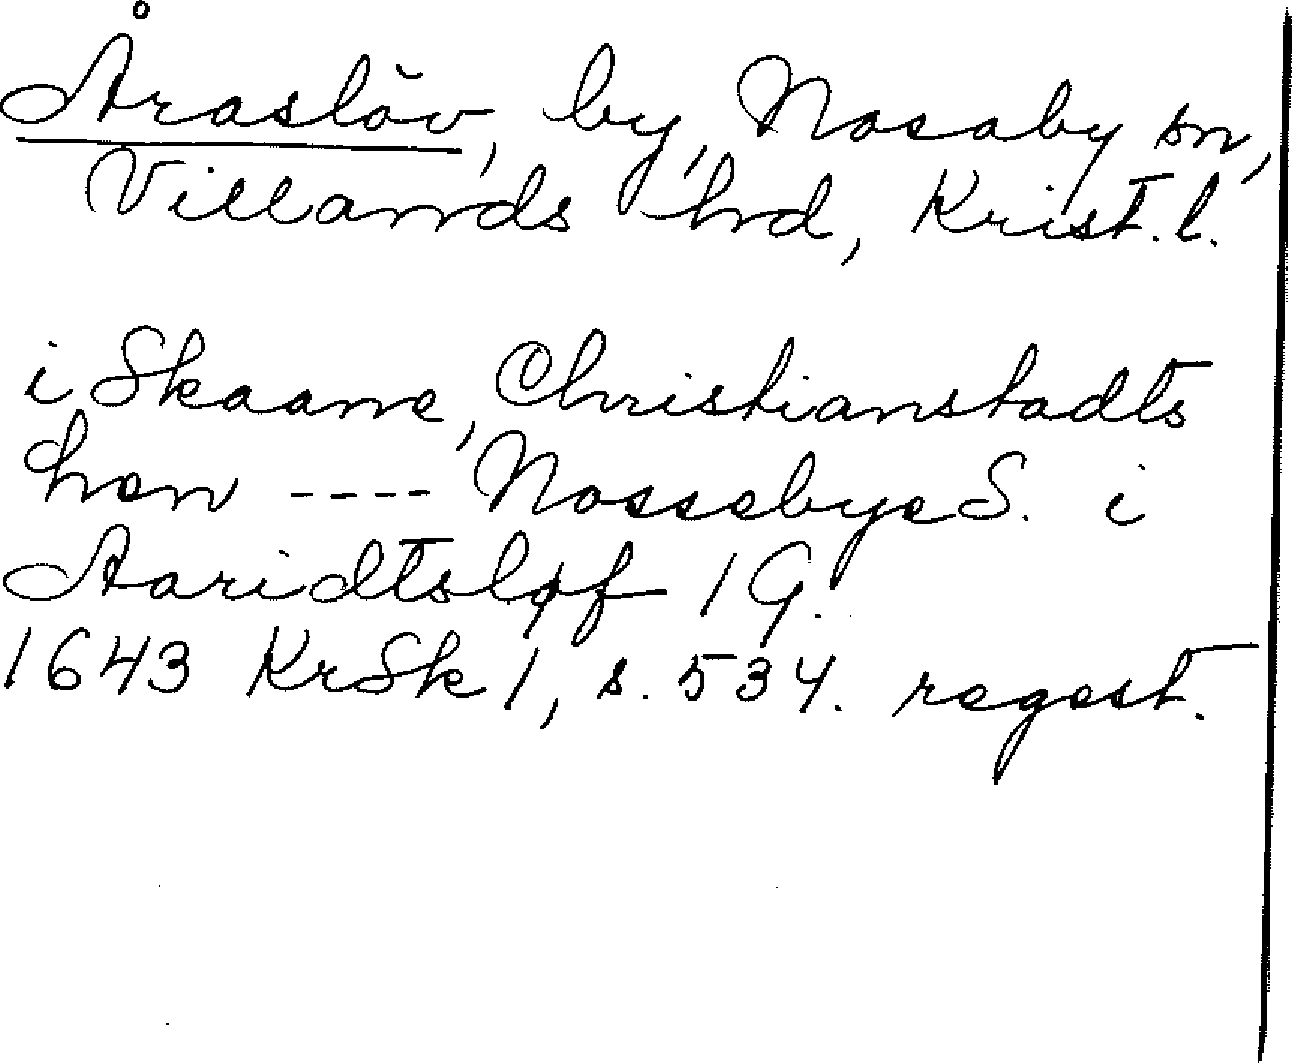 Åraslöv, by, Nosaby sn,
Villands hd, Krist. l.
i Skaane, Christianstadts
hen ---- Nossebye S. i
Aaridtsløf 1 G.
1643 KrSk 1, s. 534. regest.